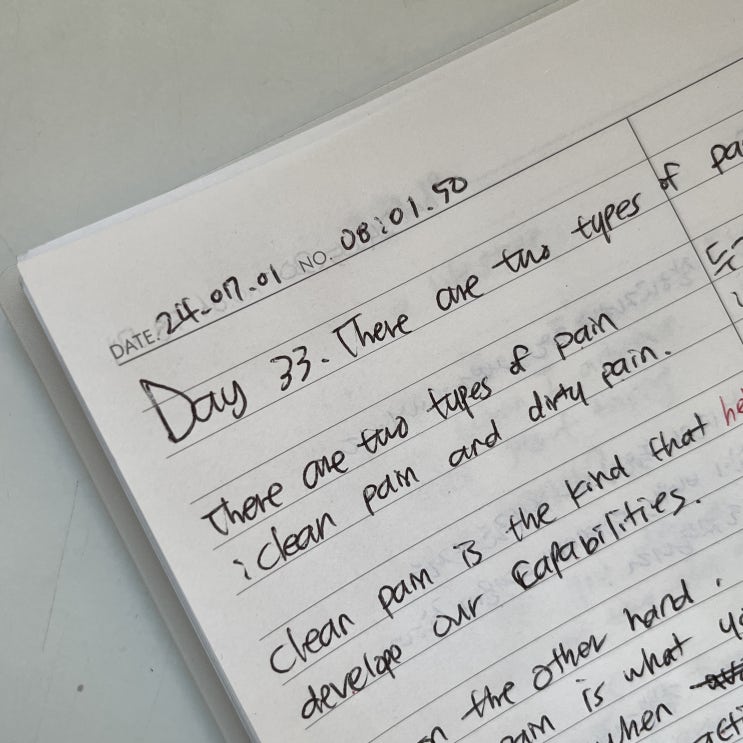 DATE. 24.07.01 NO. 08:01.50
Day 33. There are two types of pa
There are two types of pain
; clean pain and dirty pain.
clean pain is the kind that he
develope our capabilities.
on the other hand.
pain is what yo
when